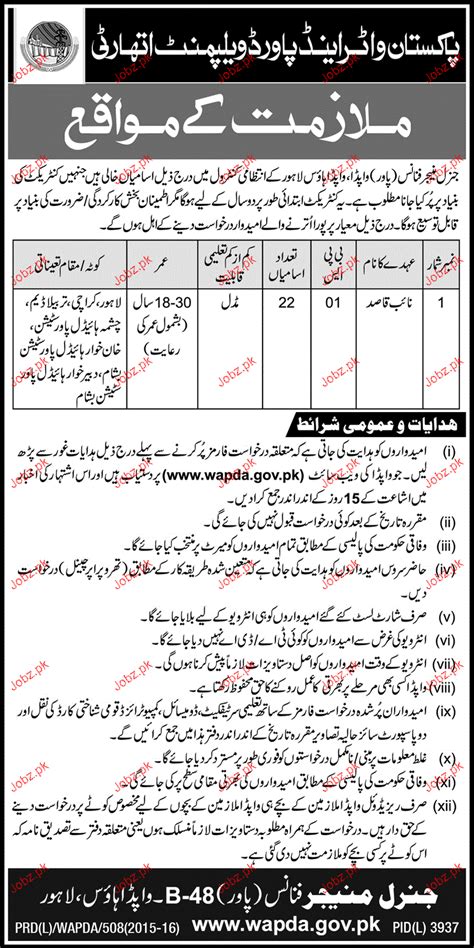 پاکستان واٹر اینڈ پاور ڈویلپمنٹ اتھارٹی
ملازمت کے مواقع
جنرل منیجر فنانس (پاور) واپڈا، واپڈا ہاؤس لاہور کے انتظامی کنٹرول میں درج ذیل اسامیاں خالی ہیں جنہیں کنٹریکٹ کی
بنیاد پر پُر کیا جانا مطلوب ہے۔ یہ کنٹریکٹ ابتدائی طور پر دو سال کے لیے ہوگا مگر اطمینان بخش کارکردگی/ضرورت کی بنیاد پر
قابل توسیع ہوگا۔ درج ذیل معیار پر پورا اترنے والے امیدوار درخواست دینے کے اہل ہوں گے۔
نمبر شمار عہدے کا نام بی پی ایس تعداد اسامیاں کم از کم تعلیمی قابلیت عمر کوٹہ/مقام تعیناتی
1 نائب قاصد 01 22 مڈل 18-30 سال (بشمول عمر کی رعایت) لاہور، کراچی، تربیلا ڈیم،
چشمہ ہائیڈل پاور سٹیشن،
خان خوار ہائیڈل پاور سٹیشن
بشام، دبیر خوار ہائیڈل پاور
سٹیشن بشام
ھدایات و عمومی شرائط
(i) امیدواروں کو ہدایت کی جاتی ہے کہ متعلقہ درخواست فارمز پُر کرنے سے پہلے درج ذیل ہدایات غور سے پڑھ
لیں۔ جو واپڈا کی ویب سائٹ (www.wapda.gov.pk) پر دستیاب ہیں اور اس اشتہار کی اخبار
میں اشاعت کے 15 روز کے اندر اندر جمع کرا دیں۔
(ii) مقررہ تاریخ کے بعد کوئی درخواست قبول نہیں کی جائے گی۔
(iii) وفاقی حکومت کی پالیسی کے مطابق تمام امیدواروں کو میرٹ پر منتخب کیا جائے گا۔
(iv) حاضر سروس امیدواروں کو ہدایت کی جاتی ہے کہ متعین شدہ طریقہ کار کے مطابق (تھرو پراپر چینل) درخواست
دیں۔
(v) صرف شارٹ لسٹ کئے گئے امیدواروں کو ہی انٹرویو کے لیے بلایا جائے گا۔
(vi) انٹرویو کی غرض سے امیدواروں کو کوئی ٹی اے/ڈی اے نہیں دیا جائے گا۔
(vii) انٹرویو کے وقت امیدواروں کو اصل دستاویزات لازماً پیش کرنا ہوں گی۔
(viii) واپڈا کسی بھی مرحلے پر بھرتی کا عمل روکنے کا حق محفوظ رکھتا ہے۔
(ix) امیدواران پُر شدہ درخواست فارمز کے ساتھ تعلیمی سرٹیفکیٹ، ڈومیسائل، کمپیوٹرائزڈ قومی شناختی کارڈ کی نقل اور
دو پاسپورٹ سائز حالیہ تصاویر مقررہ تاریخ کے اندر اندر دفتر ہذا میں جمع کرائیں۔
(x) غلط معلومات پر مبنی/نامکمل درخواستوں کو فوری طور پر مسترد کر دیا جائے گا۔
(xi) وفاقی حکومت کی پالیسی کے مطابق واپڈا ملازمین کی بھرتی مقامی سطح پر کی جائے گی۔
(xii) صرف ریٹائرڈ واپڈا ملازمین کے بچے ہی واپڈا ملازمین کے بچوں کے لیے مخصوص کوٹے پر درخواست دینے
کے حق دار ہیں۔ درخواست کے ہمراہ مطلوبہ دستاویزات لازماً منسلک ہوں بمعہ متعلقہ دفتر سے تصدیق نامہ کہ
اس کوٹے پر کسی بچے کو ملازمت نہیں دی گئی ہے۔
جنرل منیجر فنانس (پاور) B-48۔ واپڈا ہاؤس، لاہور
PRD(L)/WAPDA/508(2015-16) www.wapda.gov.pk PID(L) 3937
Jobz.pk